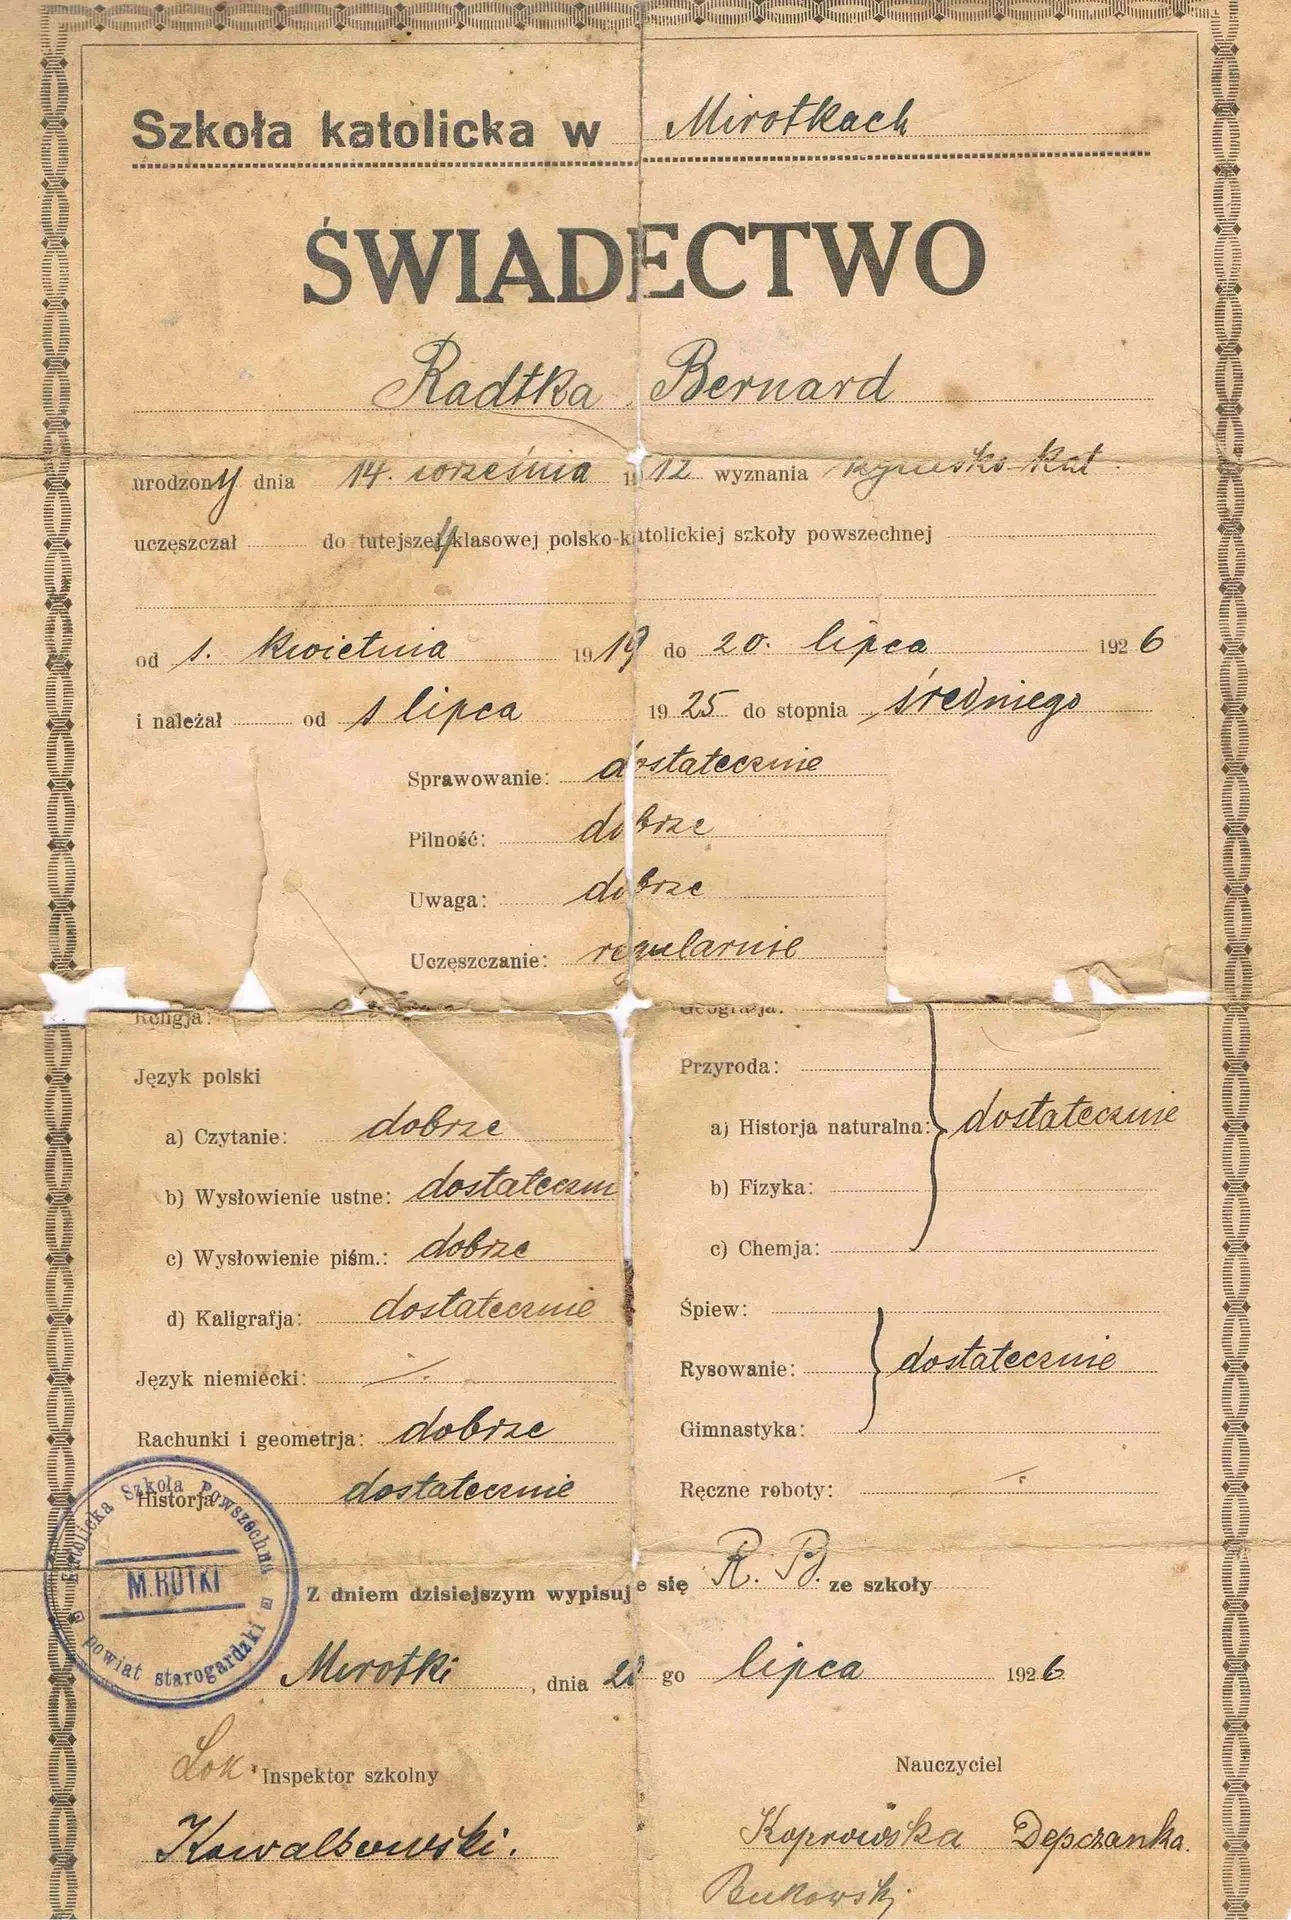 Szkoła katolicka w Mirotkach
ŚWIADECTWO
Radtka Bernard
urodzony dnia 14. września 1912 wyznania rzymsko-kat.
uczęszczał do tutejszej 4 klasowej polsko-katolickiej szkoły powszechnej
od 1. kwietnia 1919 do 20. lipca 1926
i należał od 1 lipca 1925 do stopnia średniego
Sprawowanie: dostatecznie
Pilność: dobrze
Uwaga: dobrze
Uczęszczanie: regularnie
Religja:
Język polski
a) Czytanie: dobrze
b) Wysłowienie ustne: dostateczn
c) Wysłowienie piśm.: dobrze
d) Kaligrafja: dostatecznie
Język niemiecki: /.
Rachunki i geometrja: dobrze
Historja dostatecznie
Geografja:
Przyroda:
a) Historja naturalna: dostatecznie
b) Fizyka:
c) Chemja:
Śpiew:
Rysowanie: dostatecznie
Gimnastyka:
Ręczne roboty: /.
Katolicka Szkoła Powszechna
M.ROTKI
powiat starogardzki
Z dniem dzisiejszym wypisuje się R. B. ze szkoły
Mirotki, dnia 20 go lipca 1926
Lok. Inspektor szkolny
Nauczyciel
Kowalkowski.
Koprowska Depczanka.
Bukowski.